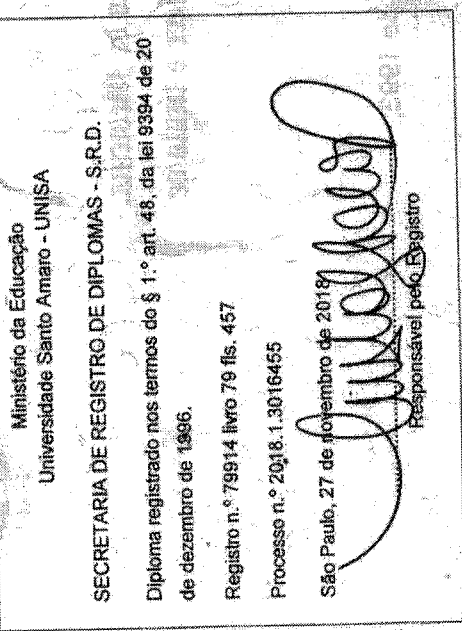 Ministério da Educação
Universidade Santo Amaro - UNISA
SECRETARIA DE REGISTRO DE DIPLOMAS - S.R.D.
Diploma registrado nos termos do § 1.º art. 48, da lei 9394 de 20
de dezembro de 1996.
Registro n.º 79914 livro 79 fls. 457
Processo n.º 2018.1.3016455
São Paulo, 27 de novembro de 2018
Responsável pelo Registro